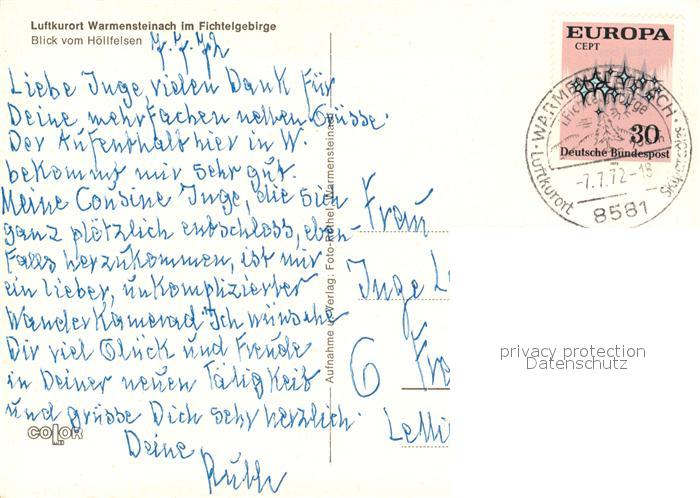 Luftkurort Warmensteinach im Fichtelgebirge
Blick vom Höllfelsen
7.7.72
Liebe Inge, vielen Dank für
Deine mehrfachen netten Grüsse.
Der Aufenthalt hier in W.
bekommt mir sehr gut.
Meine Cousine Inge, die sich
ganz plötzlich entschloss, eben-
falls herzukommen, ist mir
ein lieber, unkomplizierter
Wanderkamerad. Ich wünsche
Dir viel Glück und Freude
in Deiner neuen Tätigkeit
und grüsse Dich sehr herzlich.
Deine
Ruth
COLOR
Aufnahme u. Verlag: Foto-Röthel, Warmensteinach
EUROPA
CEPT
30
Deutsche Bundespost
WARMENSTEINACH
Luftkurort
7.7.72-18
8581
Frau
Inge L
6 Fra
Lelli
privacy protection
Datenschutz